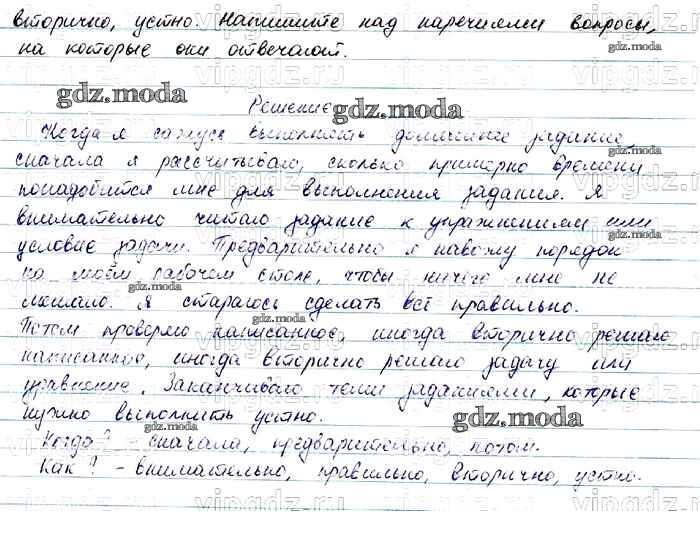 вторично, устно. Напишите над наречиями вопросы,
на которые они отвечают.
Решение
Когда я сажусь выполнять домашнее задание,
сначала я рассчитываю, сколько примерно времени
понадобится мне для выполнения задания. Я
внимательно читаю задание к упражнениям или
условие задачи. Предварительно я навожу порядок
на моём рабочем столе, чтобы ничего мне не
мешало. Я стараюсь сделать всё правильно.
Потом проверяю написанное, иногда вторично решаю
написанное, иногда вторично решаю задачу или
уравнение. Заканчиваю теми заданиями, которые
нужно выполнить устно.
Когда? - сначала, предварительно, потом.
Как? - внимательно, правильно, вторично, устно.
gdz.moda
vipgdz.ru